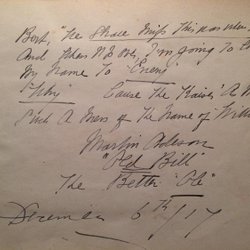 Bert, "He Shall Miss This
And When
I'm going to
My Name To "Enery"
"Why" Cause The Kaiser' A M
Such A Mess of The Name of Will
Martin
"Old Bill"
The "Better 'Ole"
December 6th/17